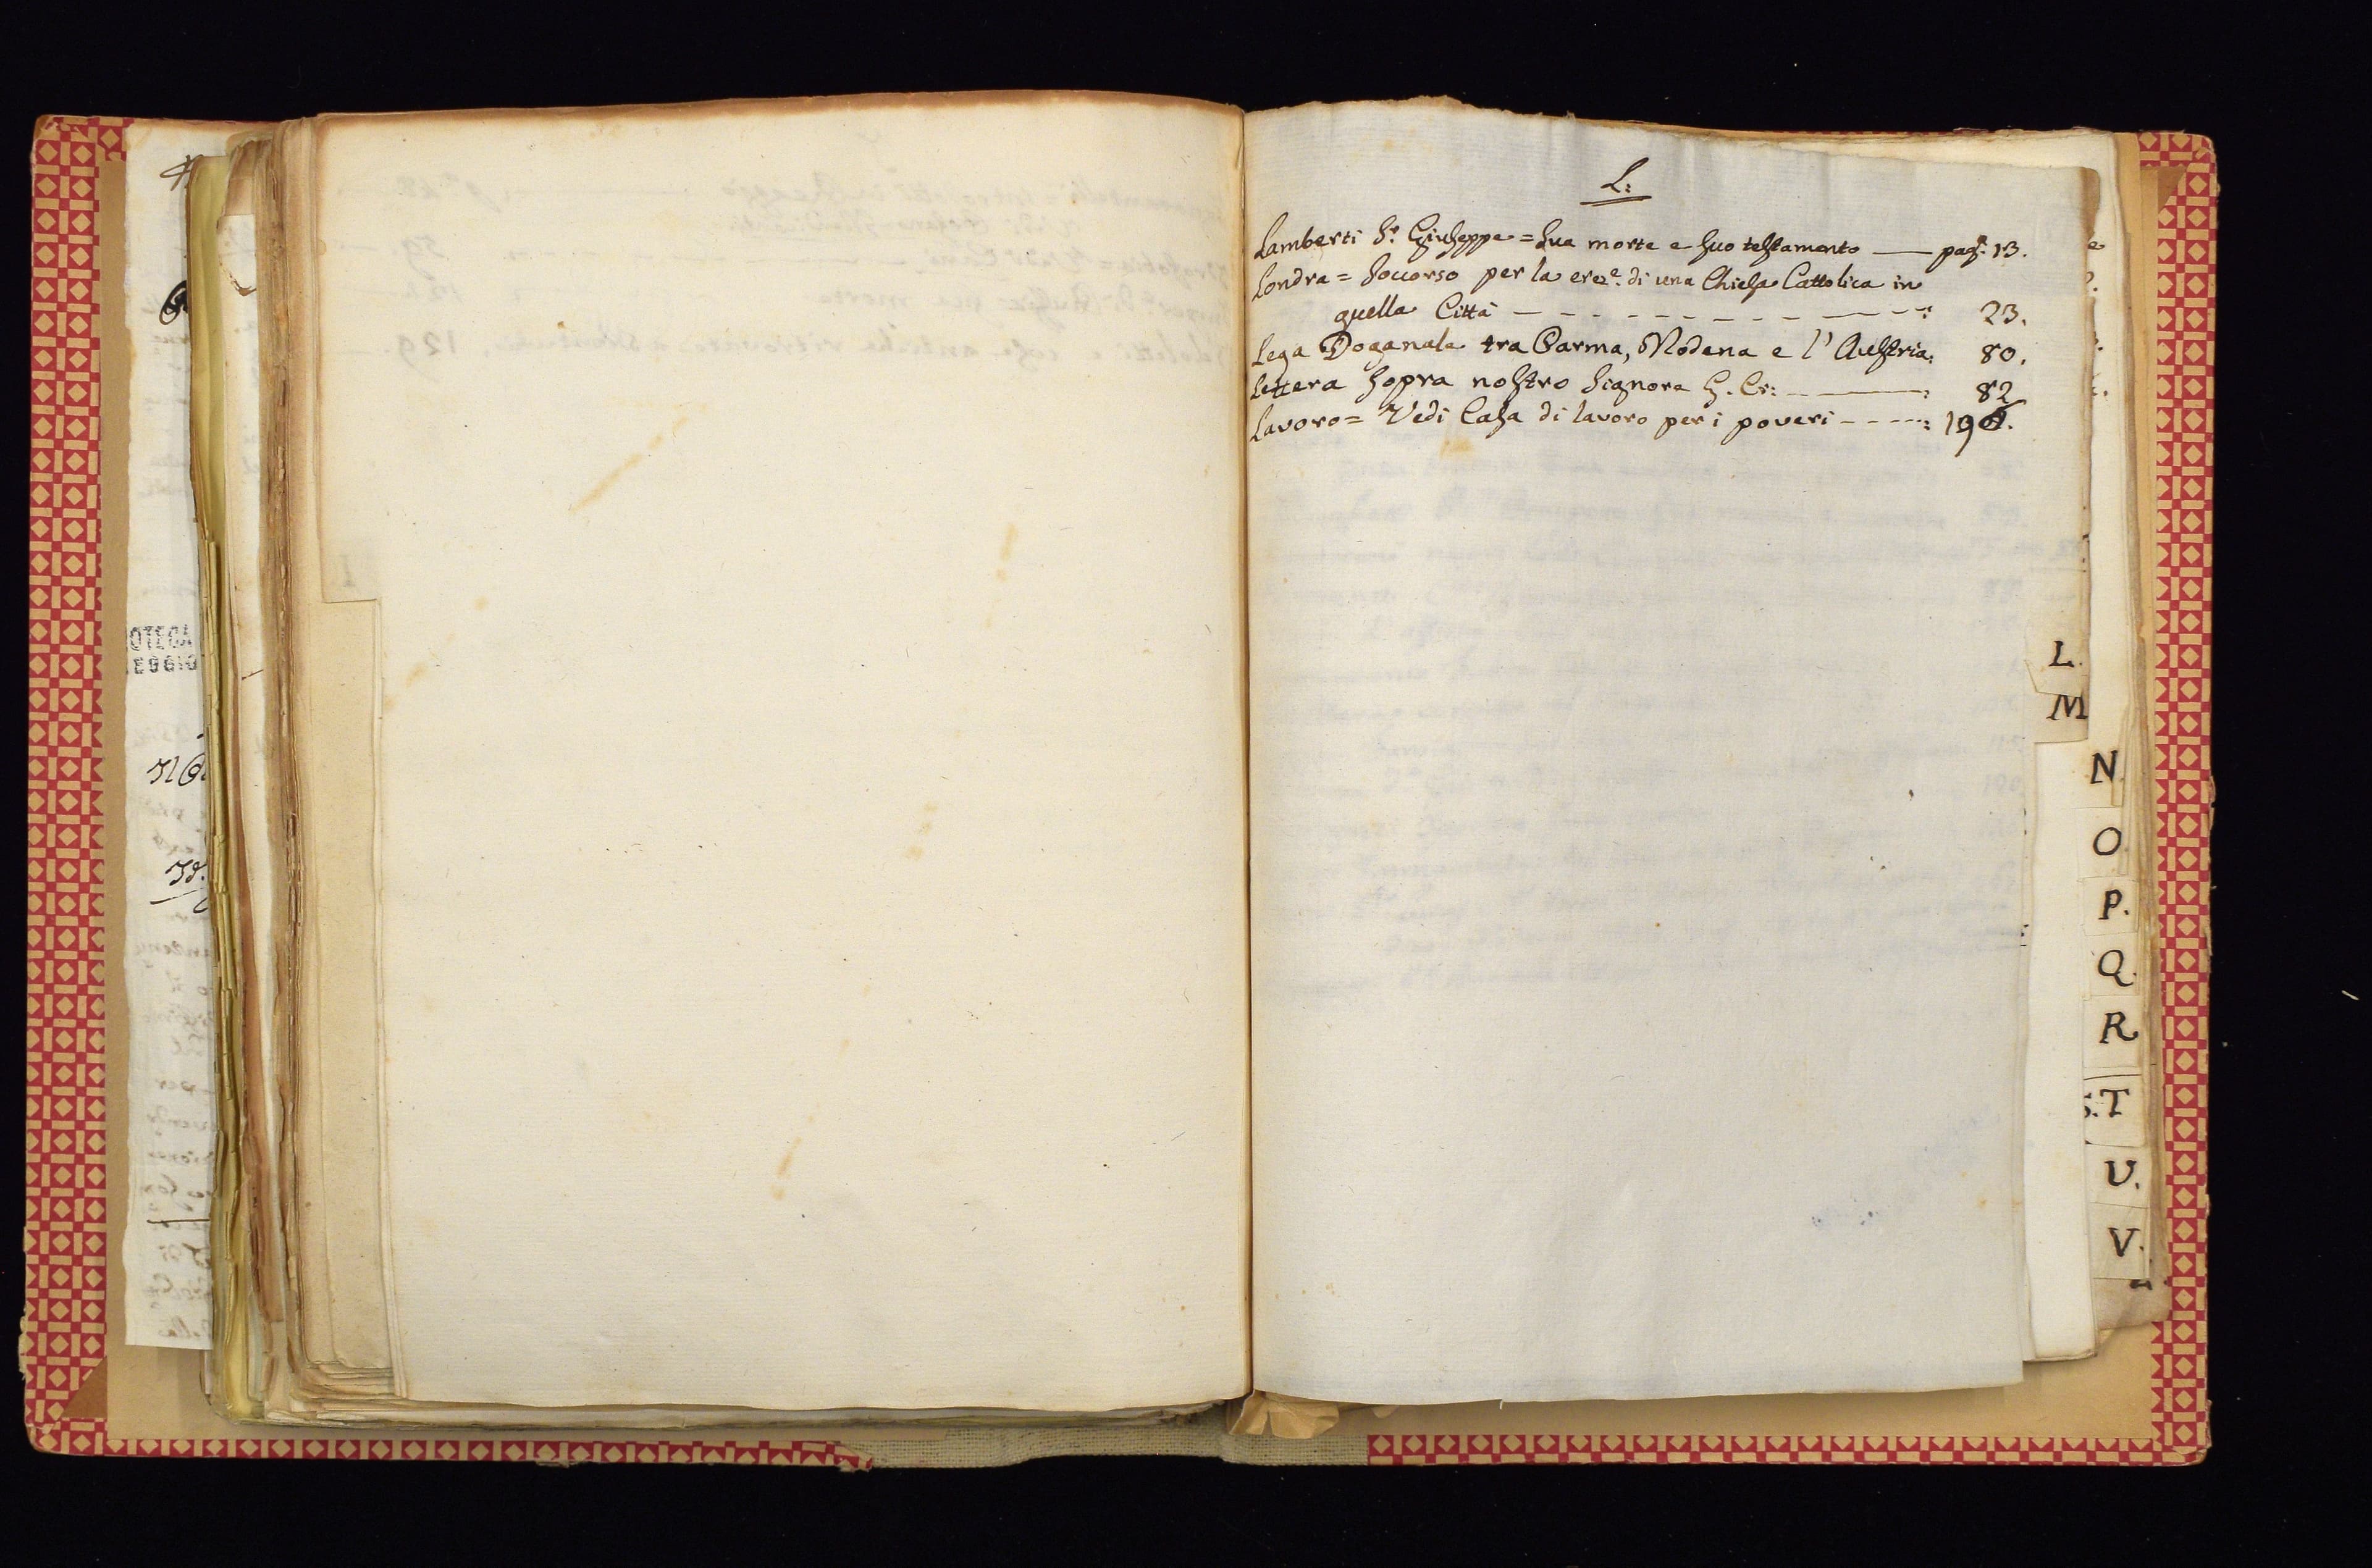 L:
Lamberti Sr. Giuseppe = Sua morte e suo testamento — pag. 13.
Londra = Soccorso per la erez.e di una Chiesa Cattolica in
quella Città - - - - - - - - - - : 23.
Lega Doganale tra Parma, Modena e l'Austria: 80.
Lettera sopra nostro Signore G. Cr: - - — : 82
Lavoro = Vedi Casa di lavoro per i poveri - - - - :
L.
M
N
O.
P.
Q.
R
S. T
U.
V.
OTECA
EGGIO